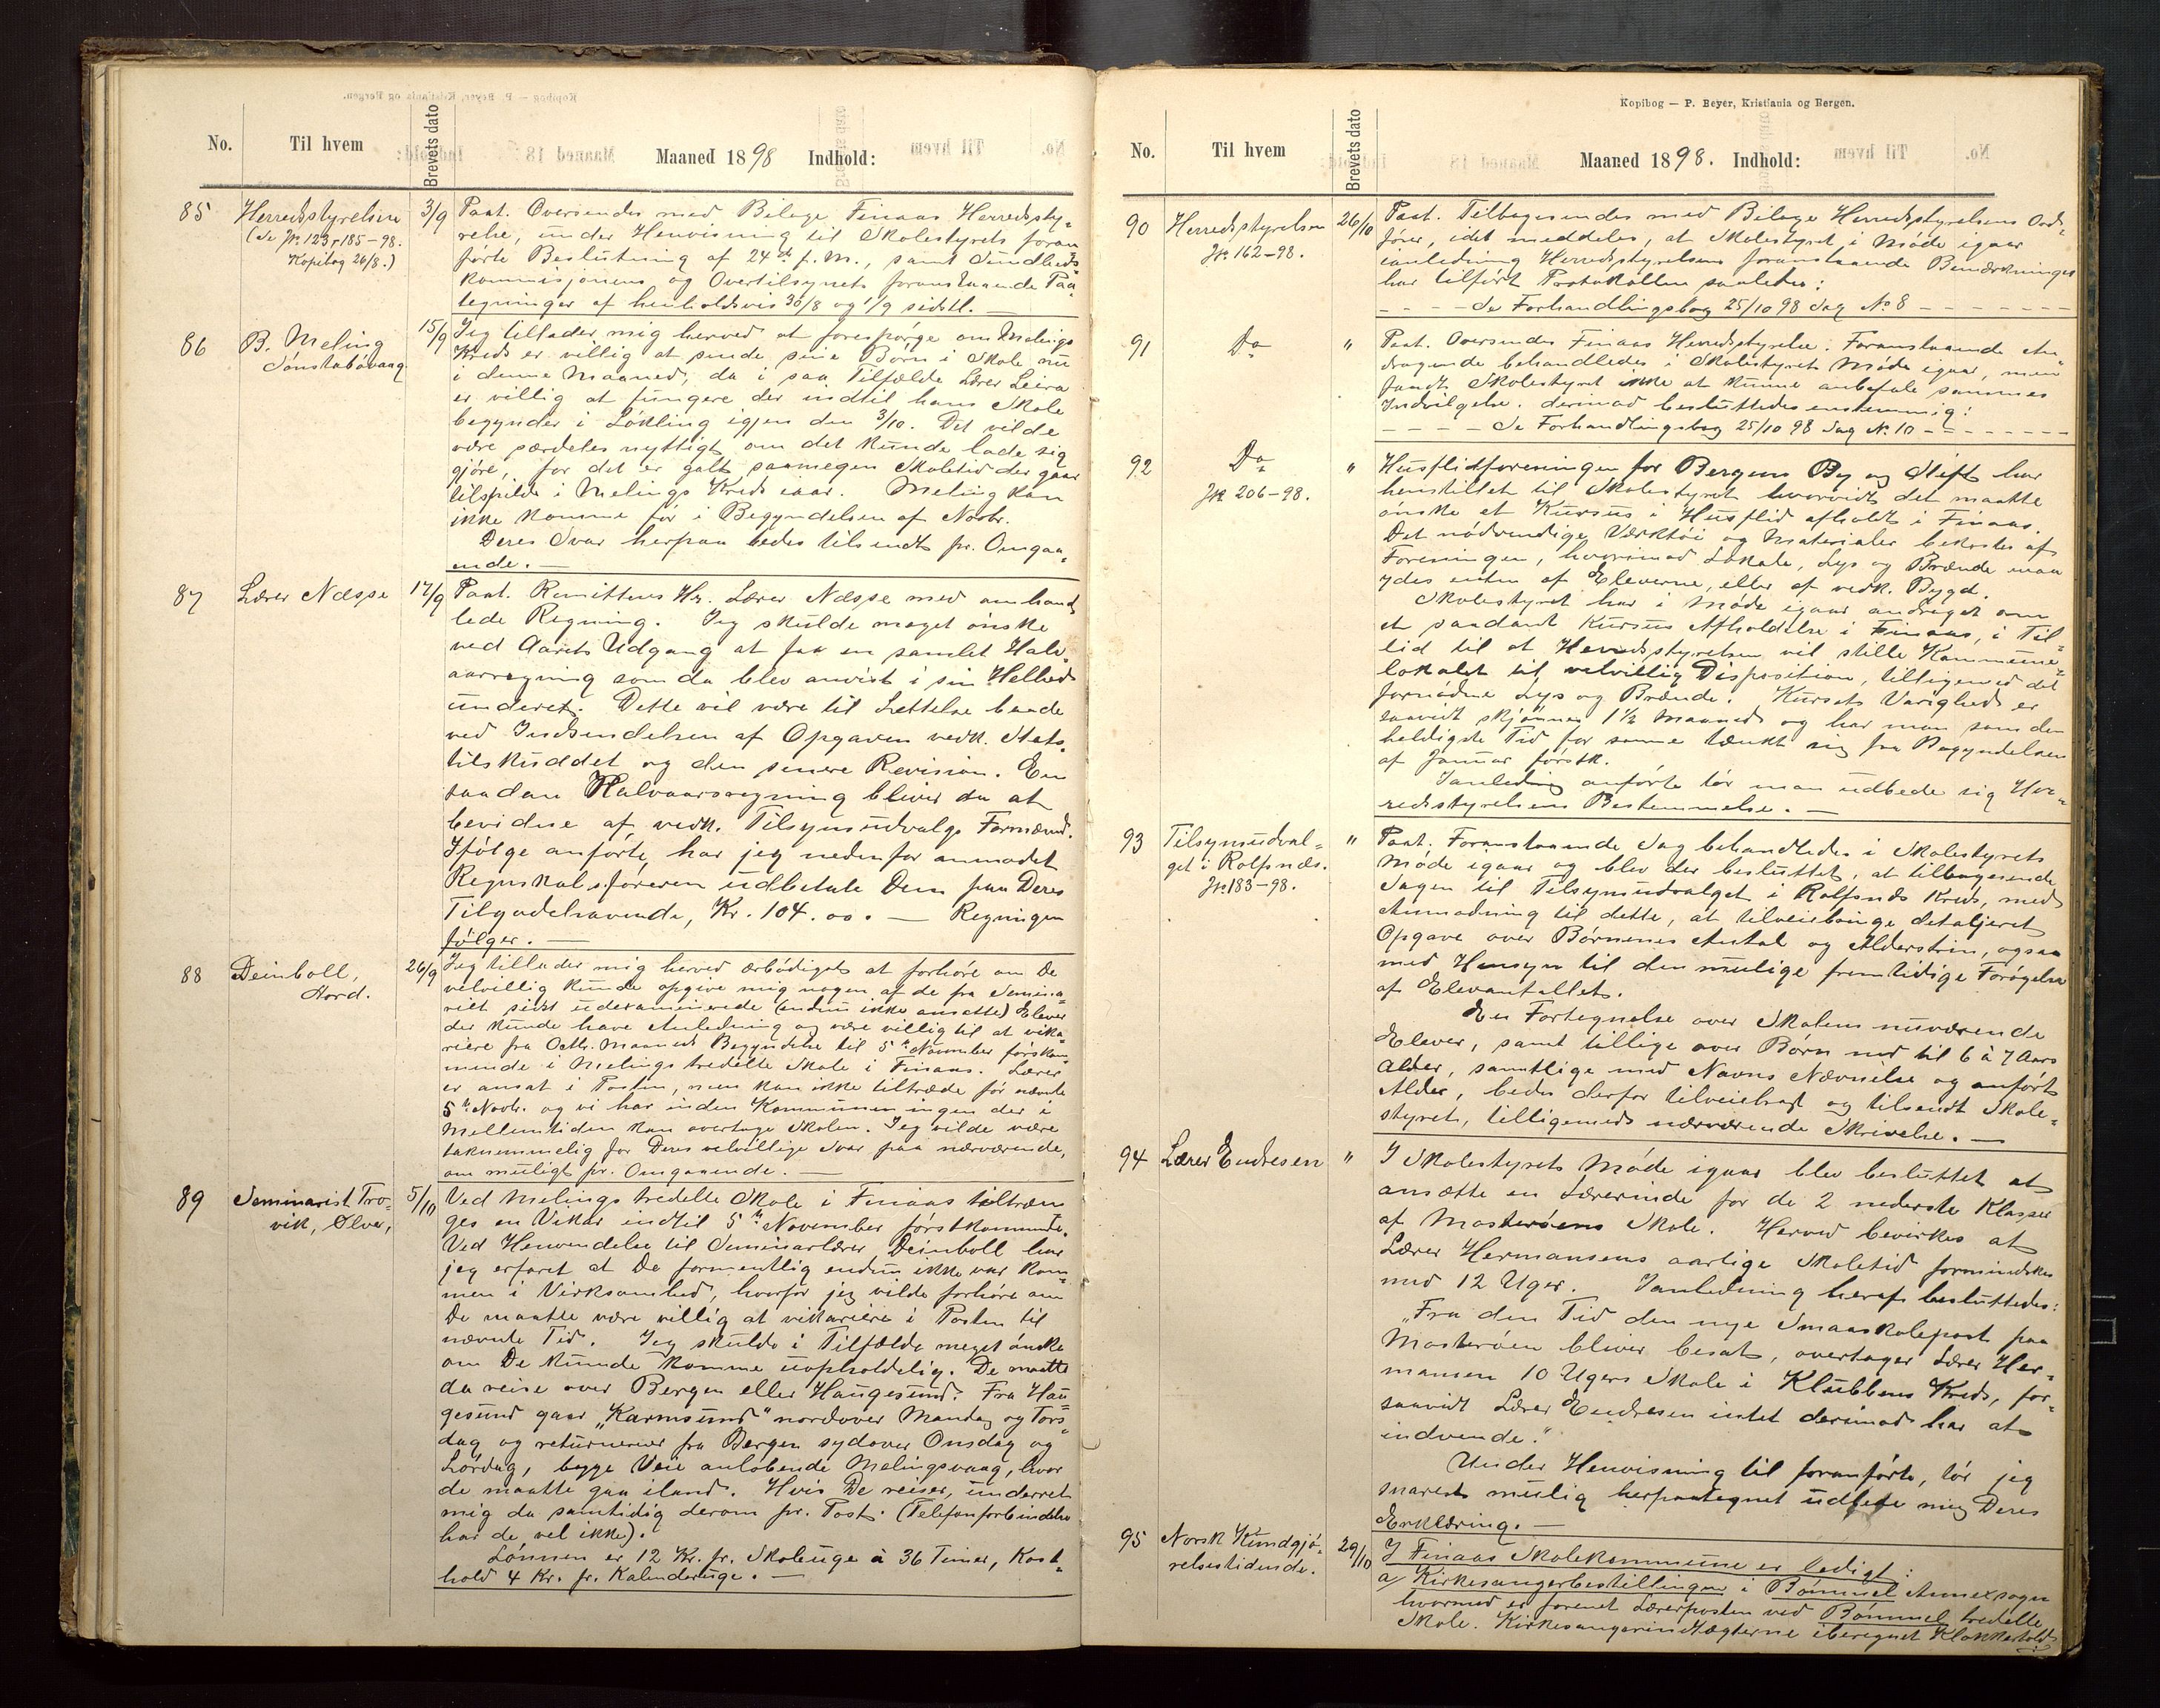 No. Til hvem Brevets dato Maaned 1898 Indhold:
85 Herredsstyrelsen 3/9 Paat. Oversendes med Bilage Finaas Herredssty-
(se Jr. 123, 185-98. relse, under Henvisning til Skolestyrets foran
Kopibog 26/8.) førte Beslutning af 24de f. M., samt Sundheds-
kommisjonens og Overtilsynets foranstaaende Paa-
tegninger af henholdsvis 30/8 og 1/9 sidstl. —
86 B. Meling 15/9 Jeg tillader mig herved at forespørge om Melings
Sønstabøvaag Kreds er villig at sende sine Børn i Skole nu
i denne Maaned, da i saa Tilfælde Lærer Leira
er villig at fungere der indtil hans Skole
begynder i Løkling igjen den 3/10. Det vilde
være særdeles nyttigt om det kunde lade sig
gjøre, for det er galt saamegen Skoletid der gaar
tilspilde i Melings Kreds iaar. Meling kan
ikke komme før i Begyndelsen af Novbr.
Deres Svar herpaa bedes tilsendt pr. Omgaa-
ende. —
87 Lærer Næsse 17/9 Paat. Remitteres Hr. Lærer Næsse med omhand-
lede Regning. Jeg skulde meget ønske
ved Aarets Udgang at faa en samlet Halv-
aarsregning som da blev anvist i sin Helhed
underet. Dette vil være til Lettelse baade
ved Indsendelsen af Opgaven vedk. Stats-
tilskuddet og den senere Revision. En
saadan Halvaarsregning bliver da at
bevidne af vedk. Tilsynsudvalgs Formænd.
Ifølge anførte, har jeg nedenfor anmodet
Regnskabsføreren udbetale Dem paa Deres
Tilgodehavende, Kr. 104.00. — Regningen
følger. —
88 Deinboll, 26/9 Jeg tillader mig herved ærbødigst at forhøre om De
Stord. velvillig kunde opgive mig nogen af de fra Semina-
riet sidst udexaminerede (endnu ikke ansatte) Elever
der kunde have Anledning og være villig til at vika-
riere fra Octbr. Maaneds Begyndelse til 5te November førstkom-
mende i Melings tredelte Skole i Finaas. Lærer
er ansat i Posten, men kan ikke tiltræde før nævnte
5te Novbr. og vi har inden Kommunen ingen der i
Mellemtiden kan overtage Skolen. Jeg vilde være
taknemmelig for Deres velvillige Svar paa nærværende,
om muligt pr. Omgaaende. —
89 Seminarist Tro- 5/10 Ved Melings tredelte Skole i Finaas tiltræn-
vik, Ølver, ges en Vikar indtil 5te November førstkommende.
Ved Henvendelse til Seminarlærer Deinboll har
jeg erfaret at De formentlig endnu ikke var kom-
men i Virksomhed, hvorfor jeg vilde forhøre om
De maatte være villig at vikariere i Posten til
nævnte Tid. Jeg skulde i Tilfælde meget ønske
om De kunde komme uopholdelig. De maatte
da reise over Bergen eller Haugesund. Fra Hau-
gesund gaar "Karmsund" nordover Mandag og Tors-
dag og returnerer fra Bergen sydover Onsdag og
Lørdag, begge Veie anløbende Melingsvaag, hvor
de maatte gaa iland. Hvis De reiser, underret
mig da samtidig derom pr. Post. (Telefonforbindelse
har de vel ikke).
Lønnen er 12 Kr. pr. Skoleuge à 36 Timer, Kost-
hold 4 Kr. pr. Kalenderuge. —
Kopibog — P. Beyer, Kristiania og Bergen.
No. Til hvem Brevets dato Maaned 1898. Indhold:
90 Herredsstyrelsen 26/10 Paat. Tilbagesendes med Bilage Herredsstyrelsens Ord-
Jr. 162-98. fører, idet meddeles, at Skolestyret i Møde igaar
ianledning Herredsstyrelsens foranstaaende Bemærkninger
har tilført Protokollen saaledes:
- - - - Se Forhandlingsbog 25/10 98 Sag No 8 - - - - - - -
91 Do " Paat. Oversendes Finaas Herredsstyrelse. Foranstaaende An-
dragende behandledes i Skolestyrets Møde igaar, men
fandt Skolestyret ikke at kunne anbefale sammes
Indvilgelse. Derimod besluttedes enstemmig:
- - - - - Se Forhandlingsbog 25/10 98 Sag No. 10 - - - - - - -
92 Do " Husflidforeningen for Bergens By og Stift har
Jr. 206-98. henstillet til Skolestyret hvorvidt det maatte
ønske et Kursus i Husflid afholdt i Finaas.
Det nødvendige Værktøi og Materialer bekostes af
Foreningen, hvorimod Lokale, Lys og Brænde maa
ydes enten af Eleverne, eller af vedk. Bygd.
Skolestyret har i Møde igaar andraget om
et saadant Kursus Afholdelse i Finaas, i Til-
lid til at Herredsstyrelsen vil stille Kommune-
lokalet til velvillig Disposition, tilligemed det
fornødne Lys og Brænde. Kursets Varighed er
saavidt skjønnes 1½ Maaned og har man som den
heldigste Tid for samme tænkt sig fra Begyndelsen
af Januar førstk.
Ianledning anførte tør man udbede sig Her-
redsstyrelsens Bestemmelse. —
93 Tilsynsudval- " Paat. Foranstaaende Sag behandledes i Skolestyrets
get i Rolfsnæs. Møde igaar og blev der besluttet, at tilbagesende
Jr. 183-98. Sagen til Tilsynsudvalget i Rolfsnæs Kreds, med
Anmodning til dette, at tilveiebringe detaljeret
Opgave over Børnenes Antal og Alderstrin, ogsaa
med Hensyn til den mulige fremtidige Forøgelse
af Elevantallet.
En Fortegnelse over Skolens nuværende
Elever, samt tillige over Børn ned til 6 à 7 Aars
Alder, samtlige med Navns Nævnelse og anført
Alder, bedes derfor tilveiebragt og tilsendt Skole-
styret, tilligemed nærværende Skrivelse. —
94 Lærer Endresen " I Skolestyrets Møde igaar blev besluttet at
ansætte en Lærerinde for de 2 nederste Klasser
af Mosterøens Skole. Herved bevirkes at
Lærer Hermansens aarlige Skoletid formindskes
med 12 Uger. Ianledning heraf besluttedes:
"Fra den Tid den nye Smaaskolepost paa
Mosterøen bliver besat, overtager Lærer Her-
mansen 10 Ugers Skole i Klubbens Kreds, for-
saavidt Lærer Endresen intet derimod har at
indvende."
Under Henvisning til foranførte, tør jeg
snarest mulig herpaategnet udbede mig Deres
Erklæring. —
95 Norsk Kundgjø- 29/10 I Finaas Skolekommune er ledigt:
relsestidende. a) Kirkesangerbestillingen i Bømmel Annexsogn
hvormed er forenet Lærerposten ved Bømmel tredelte
Skole. Kirkesangerindtægterne iberegnet Klokkerhold